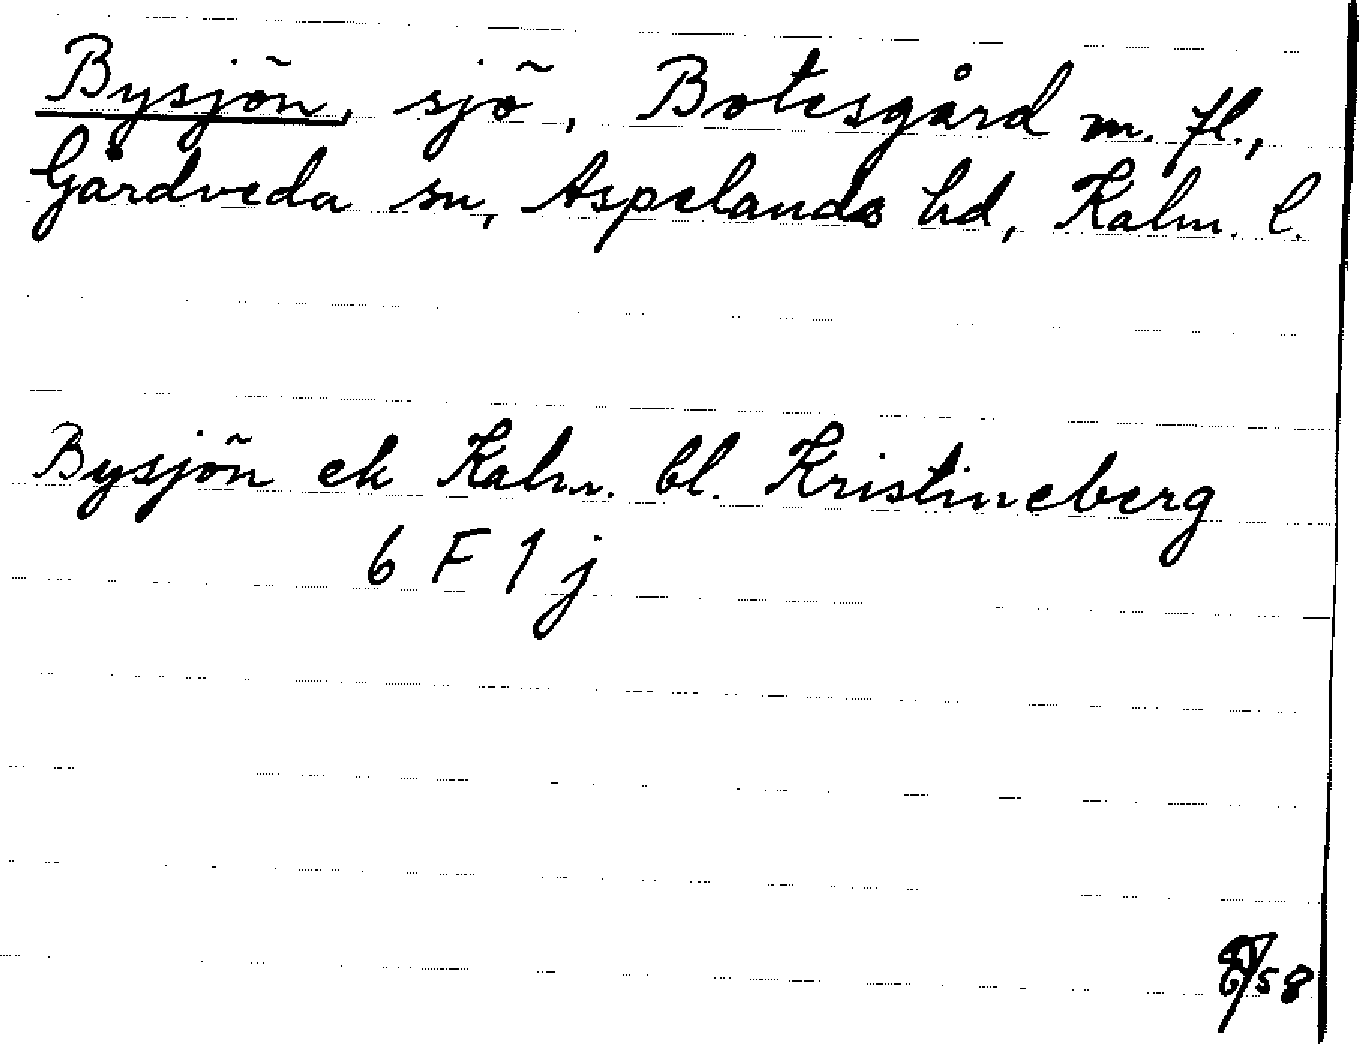 Bysjön, sjö, Botesgård m. fl.,
Gårdveda sn, Aspelands hd, Kalm. l.
Bysjön ek Kalm. bl. Kristineberg
6 F 1 j